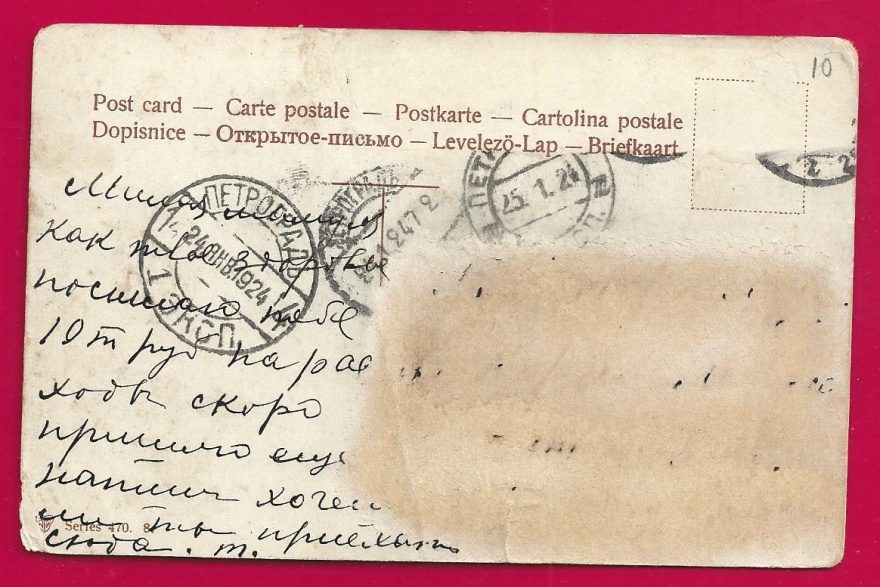 10
Post card — Carte postale — Postkarte — Cartolina postale
Dopisnice — Открытое-письмо — Levelező-Lap — Briefkaart
ПЕТРОГРАДЪ
24 ЯНВ 1924
1 ЭКСП.
25.1.24
Милая
как твое здоровье
посылаю тебе
10 т руб на рас
ходы скоро
пришлю еще
напиши хочеш
ли ты приехать
сюда. т.
Series 470. 8